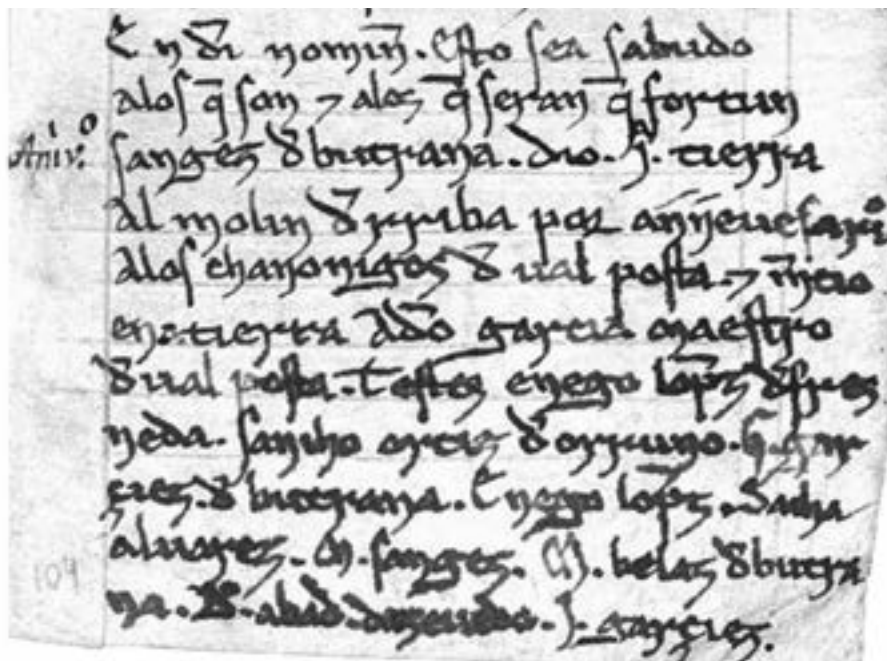 En di nomin̄. Esto sea sabudo
alos q̄ son ⁊ alos q̄ seran q̄ fortun
Anivº. sanges d̄ butrana. dio. I. tierra
al molin d̄ rriba por annieuesario
alos chanoniges d̄ ual posta. ⁊ mĩtio
en tierra ado garcia maestro
d̄ ual posta. Testes enego lop̄s
neda. sancho ortis d̄ orruno. gar
cies. d̄ butrana. Enego lop̄s.
aluares. M. sanges. M. belas d̄ butra
na. abad. J. garcies.
104